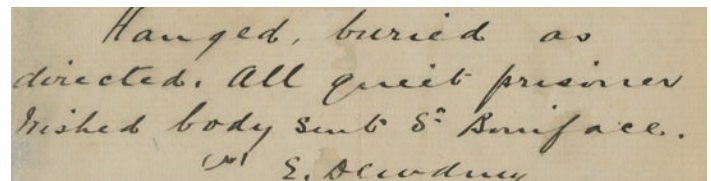 Hanged, buried as
directed. All quiet prisoner
wished body sent St Boniface.
E. Dewdney